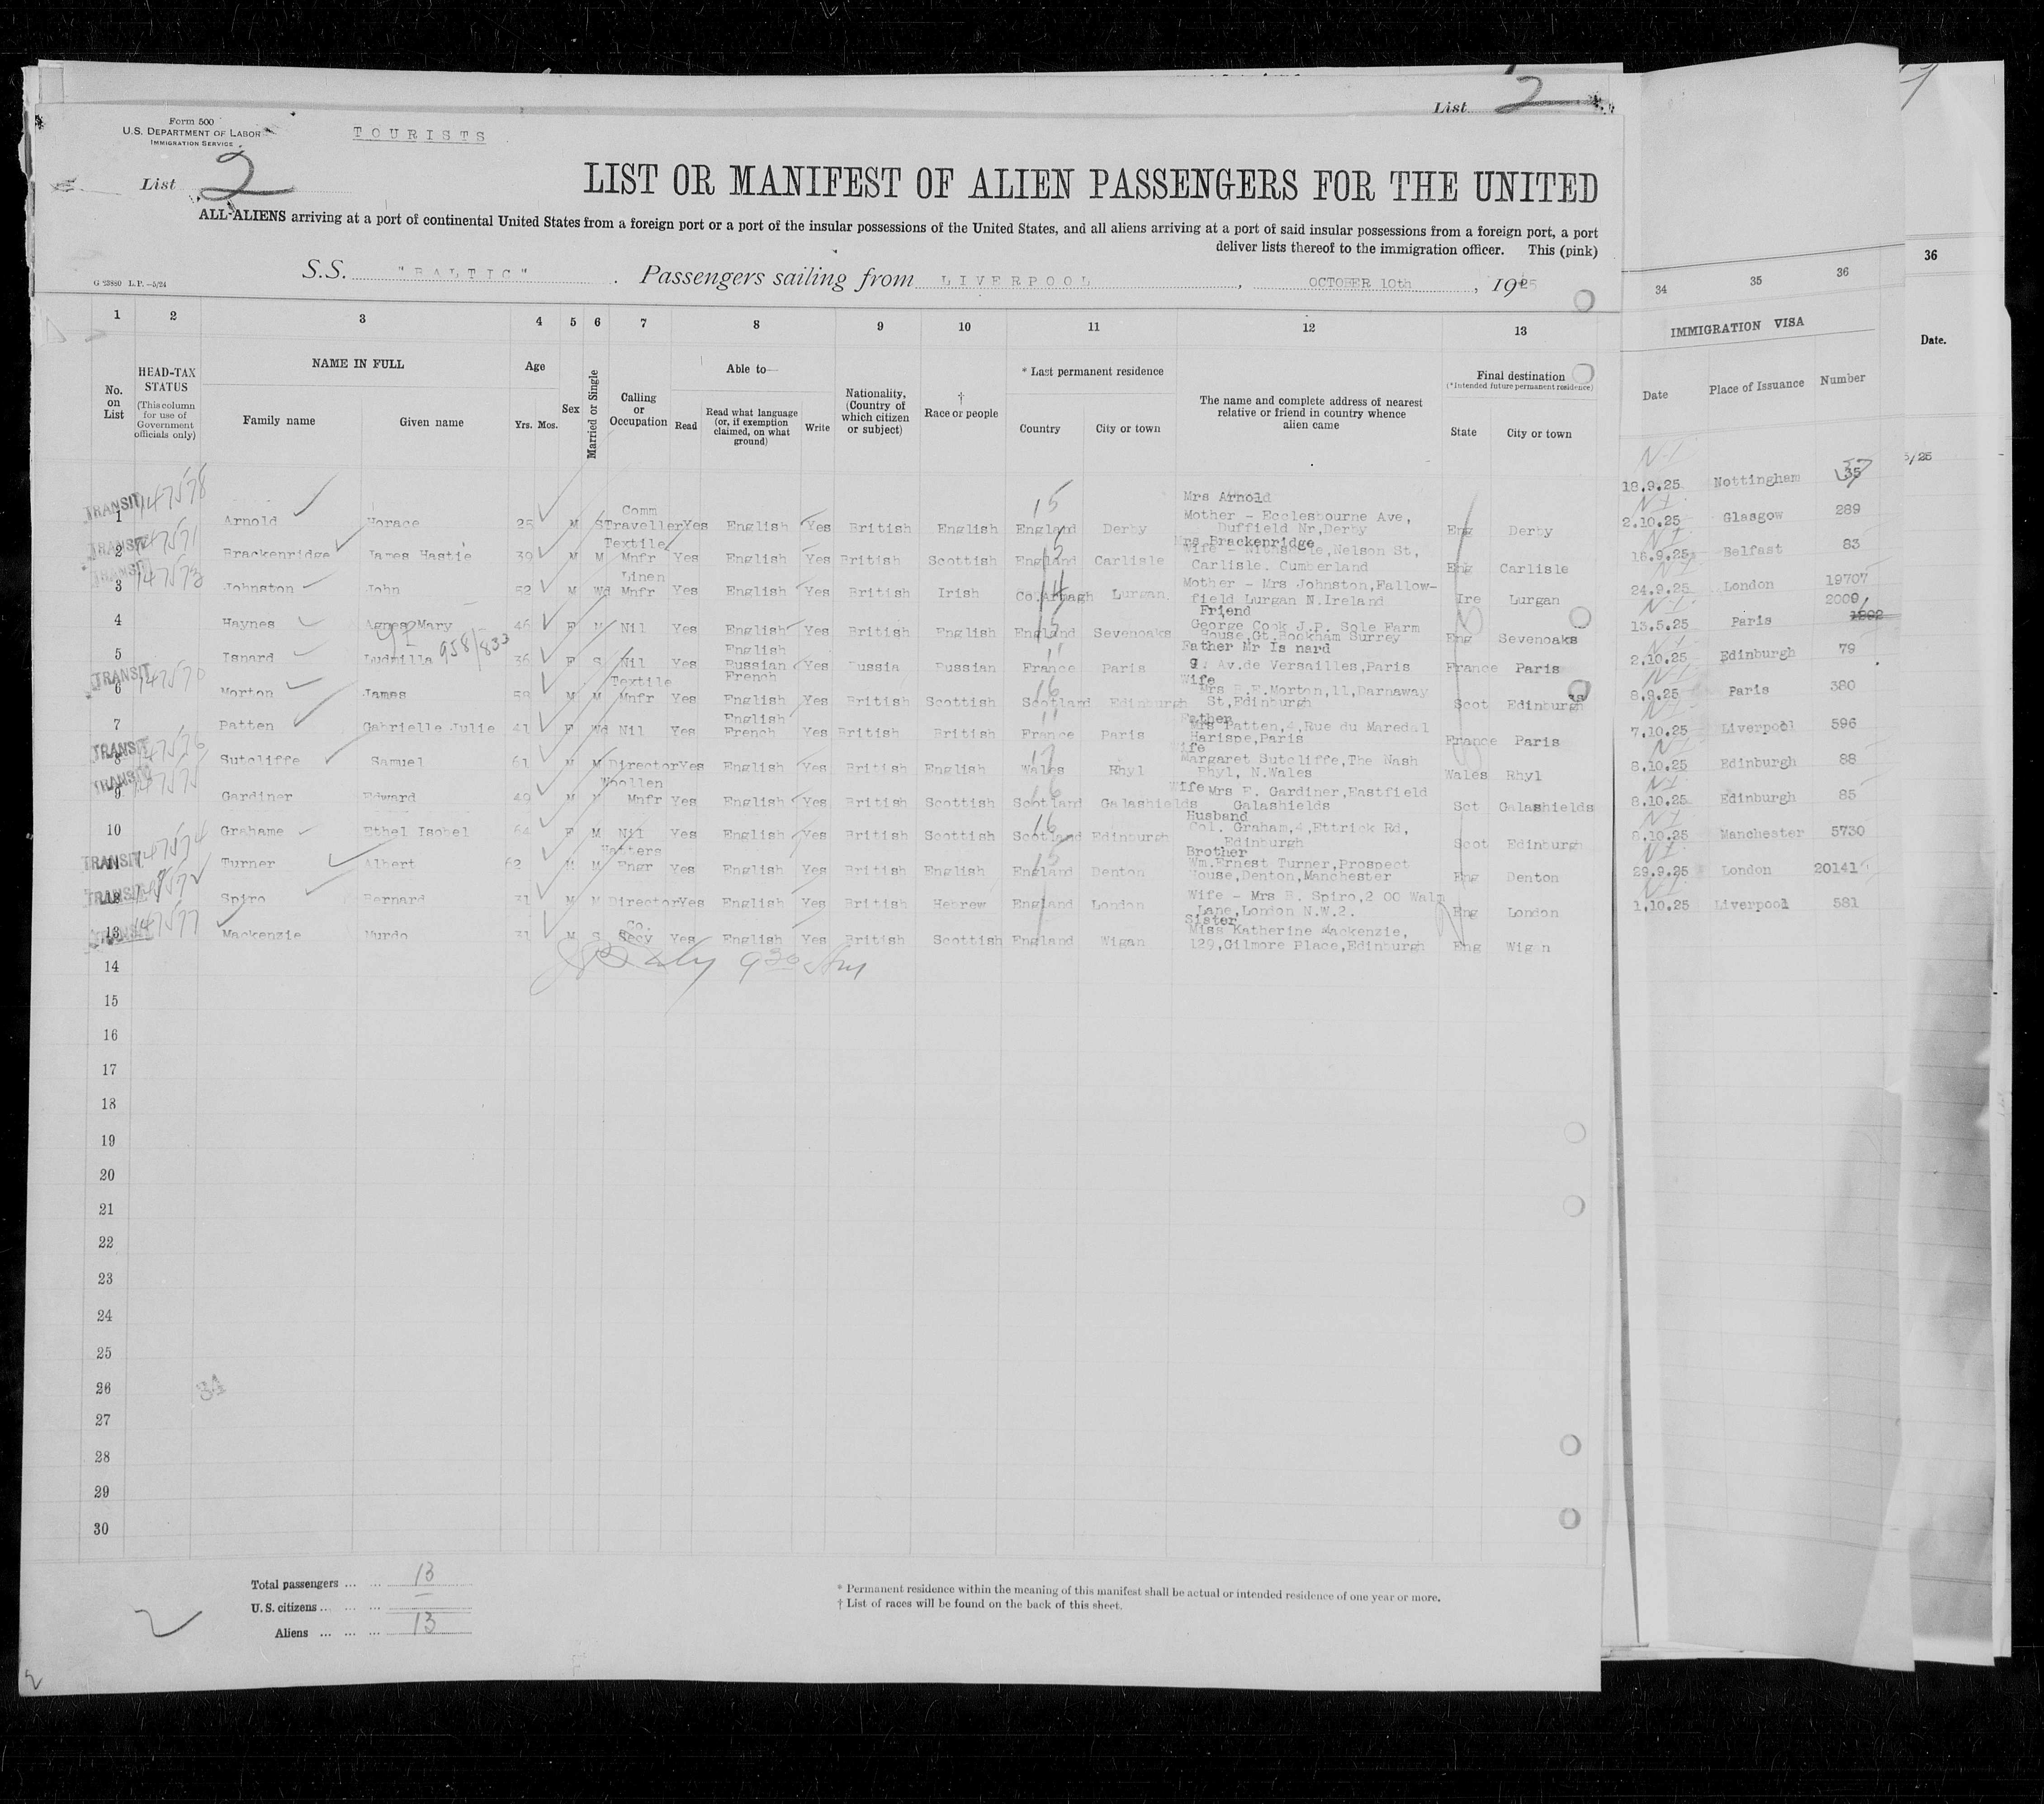 List 2
Form 500
U.S. DEPARTMENT OF LABOR
IMMIGRATION SERVICE
TOURISTS
List 2
LIST OR MANIFEST OF ALIEN PASSENGERS FOR THE UNITED
ALL ALIENS arriving at a port of continental United States from a foreign port or a port of the insular possessions of the United States, and all aliens arriving at a port of said insular possessions from a foreign port, a port
deliver lists thereof to the immigration officer. This (pink)
G 23880 L.P.—5/24
S.S. "BALTIC". Passengers sailing from LIVERPOOL, OCTOBER 10th, 1925
1 2 3 4 5 6 7 8 9 10 11 12 13 34 35 36 36
No. on List
HEAD-TAX STATUS (This column for use of Government officials only)
NAME IN FULL
Family name Given name
Age
Yrs. Mos.
Sex
Married or Single
Calling or Occupation
Able to—
Read
Read what language (or, if exemption claimed, on what ground)
Write
Nationality, (Country of which citizen or subject)
† Race or people
* Last permanent residence
Country City or town
The name and complete address of nearest relative or friend in country whence alien came
Final destination
(*Intended future permanent residence)
State City or town
IMMIGRATION VISA
Date Place of Issuance Number
Date.
5/25
TRANSIT 147578 1 Arnold Horace 25 M S Comm Traveller Yes English Yes British English England 15 Derby Mrs Arnold Mother - Ecclesbourne Ave, Duffield Nr, Derby Eng Derby
TRANSIT 147571 2 Brackenridge James Hastie 39 M M Textile Mnfr Yes English Yes British Scottish England 15 Carlisle Mrs Brackenridge Wife - Nelson St, Carlisle. Cumberland Eng Carlisle
TRANSIT 147573 3 Johnston John 52 M Wd Linen Mnfr Yes English Yes British Irish Co.Armagh 14 Lurgan. Mother - Mrs Johnston, Fallow-field Lurgan N.Ireland Ire Lurgan
4 Haynes Agnes Mary 46 F M Nil Yes English Yes British English England 15 Sevenoaks Friend George Cook J.P. Sole Farm House, Gt. Bookham Surrey Eng Sevenoaks
5 Isnard Ludmilla 958/833 36 F S Nil Yes English Russian French Yes Russia Russian France 11 Paris Father Mr Is nard 9, Av.de Versailles, Paris France Paris
TRANSIT 147570 6 Morton James 58 M M Textile Mnfr Yes English Yes British Scottish Scotland 16 Edinburgh Wife Mrs B.E.Morton, 11, Darnaway St, Edinburgh Scot Edinburgh
7 Patten Gabrielle Julie 41 F Wd Nil Yes English French Yes British British France 11 Paris Father Mrs Patten, 4, Rue du Maredal Harispe, Paris France Paris
TRANSIT 147576 8 Sutcliffe Samuel 61 M M Director Yes English Yes British English Wales 17 Rhyl Wife Margaret Sutcliffe, The Nash Rhyl, N.Wales Wales Rhyl
TRANSIT 147575 9 Gardiner Edward 49 M M Woollen Mnfr Yes English Yes British Scottish Scotland 16 Galashields Wife Mrs E. Gardiner, Eastfield Galashields Sct Galashields
10 Grahame Ethel Isobel 64 F M Nil Yes English Yes British Scottish Scotland 16 Edinburgh Husband Col. Graham, 4, Ettrick Rd, Edinburgh Scot Edinburgh
TRANSIT 147574 11 Turner Albert 62 M M Hatters Engr Yes English Yes British English England 15 Denton Brother Wm.Ernest Turner, Prospect House, Denton, Manchester Eng Denton
TRANSIT 147572 12 Spiro Bernard 31 M M Director Yes English Yes British Hebrew England London Wife - Mrs B. Spiro, 2 00 Walm Lane, London N.W.2. Eng London
TRANSIT 147577 13 Mackenzie Murdo 31 M S Co. Secy Yes English Yes British Scottish England Wigan Sister Miss Katherine Mackenzie, 129, Gilmore Place, Edinburgh Eng Wig n
18.9.25 Nottingham 35
2.10.25 Glasgow 289
16.9.25 Belfast 83
24.9.25 London 19707
13.5.25 Paris 2009
2.10.25 Edinburgh 79
8.9.25 Paris 380
7.10.25 Liverpool 596
8.10.25 Edinburgh 88
8.10.25 Edinburgh 85
8.10.25 Manchester 5730
29.9.25 London 20141
1.10.25 Liverpool 581
14
15
16
17
18
19
20
21
22
23
24
25
26
27
28
29
30
Total passengers ... ... 13
U.S. citizens ... ... ...
Aliens ... ... ... 13
* Permanent residence within the meaning of this manifest shall be actual or intended residence of one year or more.
† List of races will be found on the back of this sheet.
2